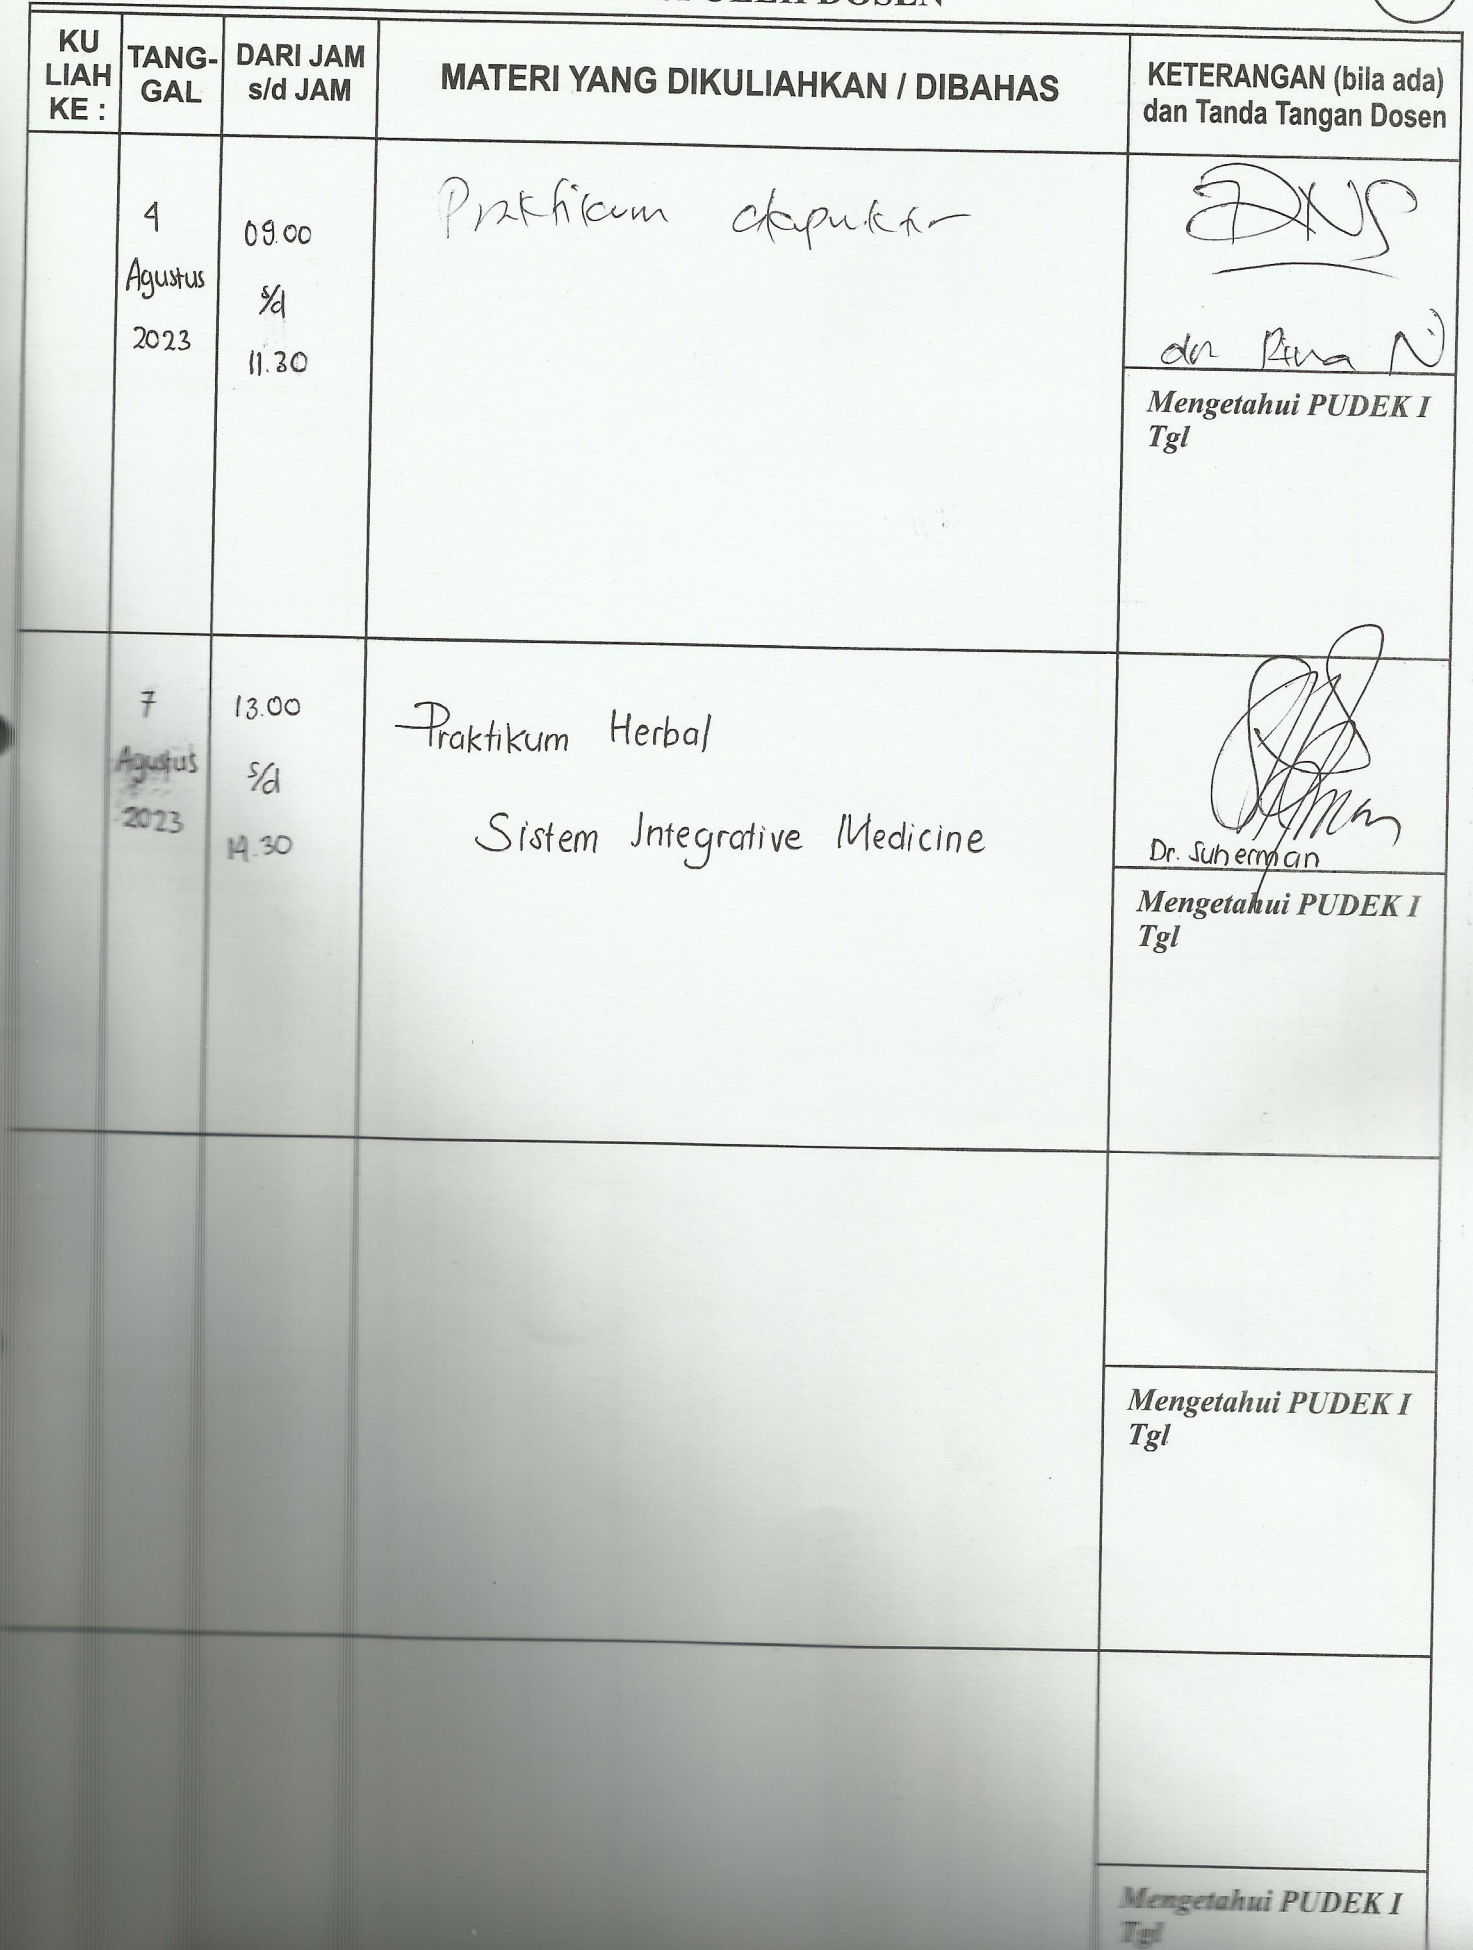 OLEH DOSEN
KU
LIAH
KE :
TANG-
GAL
DARI JAM
s/d JAM
MATERI YANG DIKULIAHKAN / DIBAHAS
KETERANGAN (bila ada)
dan Tanda Tangan Dosen
4
Agustus
2023
09.00
s/d
11.30
Praktikum
dr Rina N
Mengetahui PUDEK I
Tgl
7
Agustus
2023
13.00
s/d
14.30
Praktikum Herbal
Sistem Integrative Medicine
Dr. Suherman
Mengetahui PUDEK I
Tgl
Mengetahui PUDEK I
Tgl
Mengetahui PUDEK I
Tgl